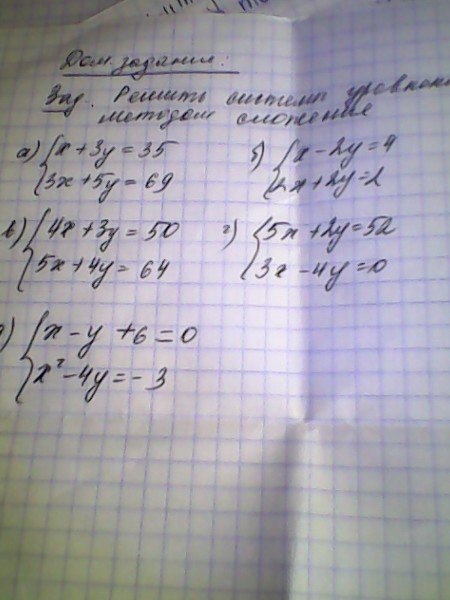 Дом. задание:
Зад. Решить системы уравнени
методом сложение
а) { x + 3y = 35
3x + 5y = 69
б) { x - 2y = 4
2x + 2y = 2
в) { 4x + 3y = 50
5x + 4y = 64
г) { 5x + 2y = 52
3x - 4y = 0
) { x - y + 6 = 0
x² - 4y = - 3